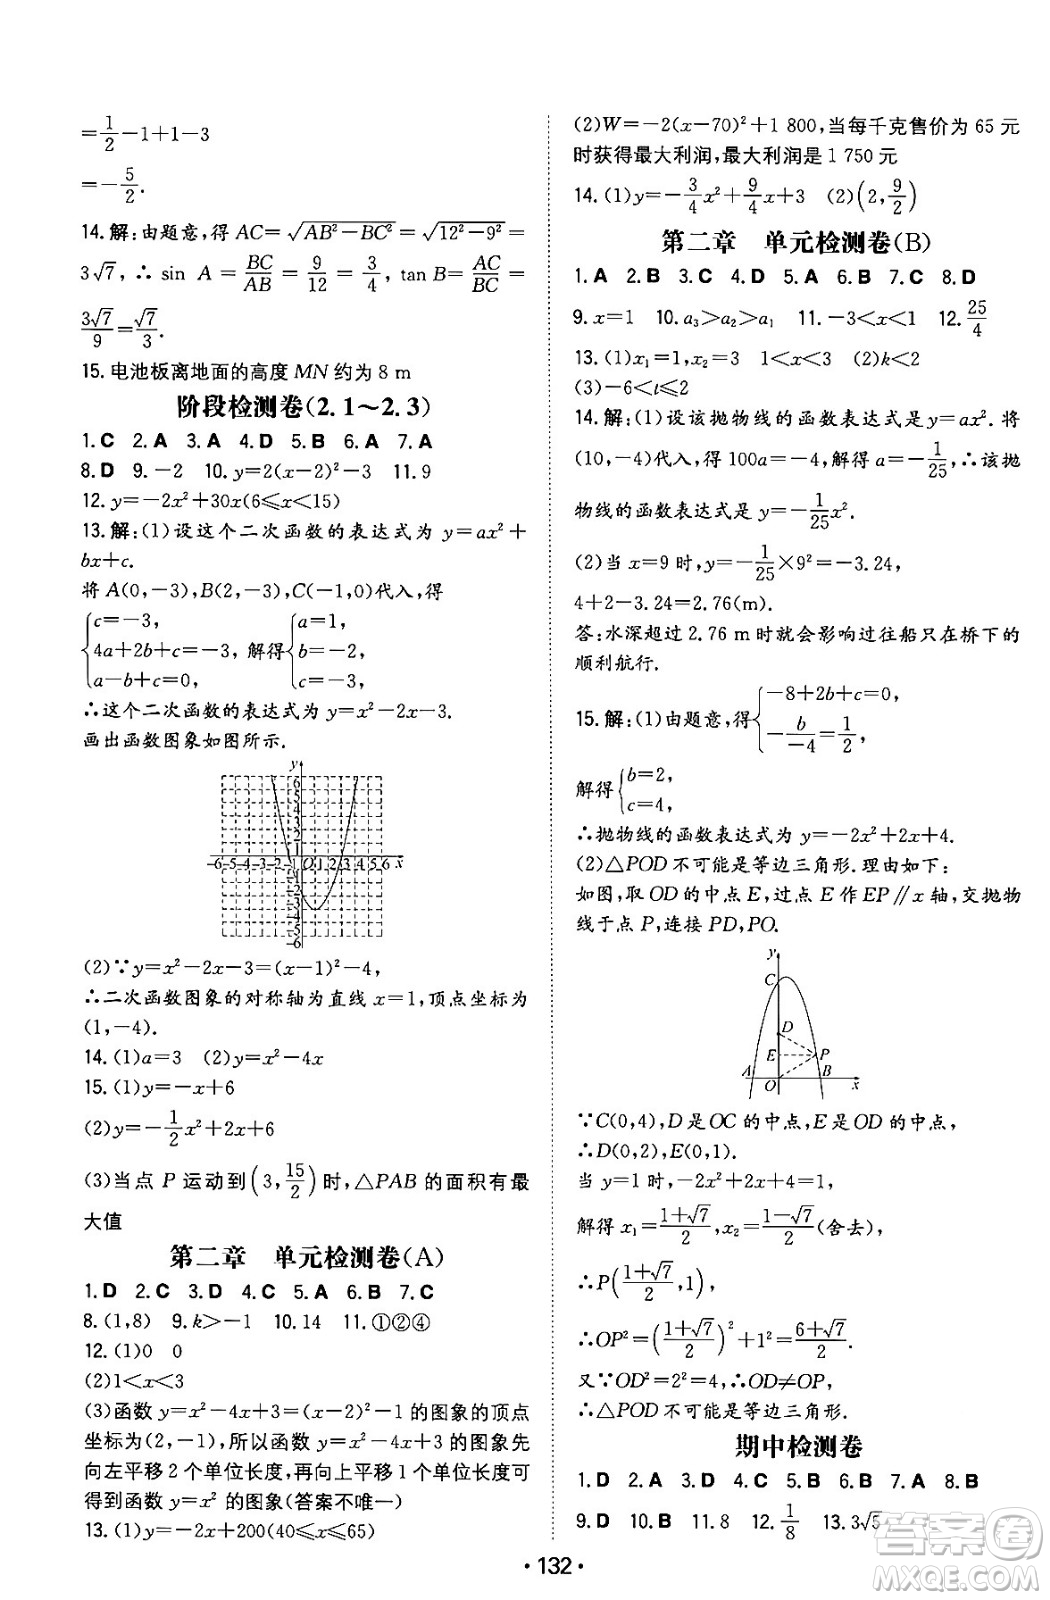 =1/2-1+1-3
=-5/2.
14.解:由题意,得 AC=√(AB²-BC²)=√(12²-9²)=
3√7,∴sin A=BC/AB=9/12=3/4,tan B=AC/BC=
3√7/9=√7/3.
15.电池板离地面的高度 MN 约为 8 m
阶段检测卷(2.1~2.3)
1.C 2.A 3.A 4.D 5.B 6.A 7.A
8.D 9.-2 10.y=2(x-2)²-3 11.9
12.y=-2x²+30x(6≤x<15)
13.解:(1)设这个二次函数的表达式为 y=ax²+
bx+c.
将 A(0,-3),B(2,-3),C(-1,0)代入,得
{c=-3, 4a+2b+c=-3, a-b+c=0, 解得 {a=1, b=-2, c=-3,
∴这个二次函数的表达式为 y=x²-2x-3.
画出函数图象如图所示.
y
6
5
4
3
2
1
-6-5-4-3-2-1 O 1 2 3 4 5 6 x
-1
-2
-3
-4
-5
-6
(2)∵y=x²-2x-3=(x-1)²-4,
∴二次函数图象的对称轴为直线 x=1,顶点坐标为
(1,-4).
14.(1)a=3 (2)y=x²-4x
15.(1)y=-x+6
(2)y=-1/2x²+2x+6
(3)当点 P 运动到(3,15/2)时,△PAB 的面积有最
大值
第二章 单元检测卷(A)
1.D 2.C 3.D 4.C 5.A 6.B 7.C
8.(1,8) 9.k>-1 10.14 11.①②④
12.(1)0 0
(2)1<x<3
(3)函数 y=x²-4x+3=(x-2)²-1 的图象的顶点
坐标为(2,-1),所以函数 y=x²-4x+3 的图象先
向左平移 2 个单位长度,再向上平移 1 个单位长度,可
得到函数 y=x² 的图象(答案不唯一)
13.(1)y=-2x+200(40≤x≤65)
(2)W=-2(x-70)²+1 800,当每千克售价为 65 元
时获得最大利润,最大利润是 1 750 元
14.(1)y=-3/4x²+9/4x+3 (2)(2,9/2)
第二章 单元检测卷(B)
1.A 2.B 3.C 4.D 5.A 6.B 7.C 8.D
9.x=1 10.a₃>a₂>a₁ 11.-3<x<1 12.25/4
13.(1)x₁=1,x₂=3 1<x<3 (2)k<2
(3)-6<t≤2
14.解:(1)设该抛物线的函数表达式是 y=ax².将
(10,-4)代入,得 100a=-4,解得 a=-1/25,∴该抛
物线的函数表达式是 y=-1/25x².
(2)当 x=9 时,y=-1/25×9²=-3.24,
4+2-3.24=2.76(m).
答:水深超过 2.76 m 时就会影响过往船只在桥下的
顺利航行.
15.解:(1)由题意,得{-8+2b+c=0, -b/-4=1/2,
解得{b=2, c=4,
∴抛物线的函数表达式为 y=-2x²+2x+4.
(2)△POD 不可能是等边三角形.理由如下:
如图,取 OD 的中点 E,过点 E 作 EP∥x 轴,交抛物
线于点 P,连接 PD,PO.
y
C
D
E P
A O B x
∵C(0,4),D 是 OC 的中点,E 是 OD 的中点,
∴D(0,2),E(0,1).
当 y=1 时,-2x²+2x+4=1,
解得 x₁=(1+√7)/2,x₂=(1-√7)/2(舍去),
∴P((1+√7)/2,1),
∴OP²=((1+√7)/2)²+1²=(6+√7)/2.
又∵OD²=2²=4,∴OD≠OP,
∴△POD 不可能是等边三角形.
期中检测卷
1.D 2.A 3.D 4.B 5.B 6.B 7.A 8.B
9.D 10.B 11.8 12.1/8 13.3√5
答案圈
MXQE.COM
·132·